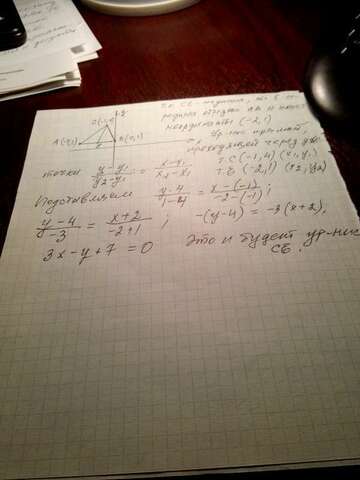 C(-1,4)
A(-4,1)
B(0,1)
Т.к. CE - медиана, то E
середина отрезка AB и имеет
координаты (-2,1)
Ур-ние прямой,
проходящей через две
точки y-y₁/y₂-y₁ = x-x₁/x₂-x₁
т. C(-1,4) (x₁,y₁)
т. E(-2,1) (x₂,y₂)
Подставляем y-4/1-4 = x-(-1)/-2-(-1);
y-4/-3 = x+2/-2+1; -(y-4) = -3(x+2),
3x-y+7=0 Это и будет ур-ние
CE.